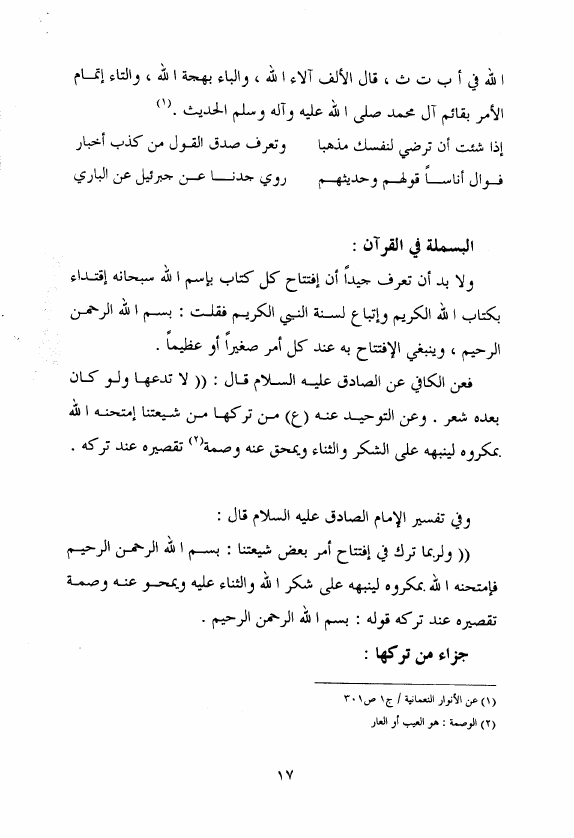 الله في أ ب ت ث ، قال الألف آلاء الله ، والباء بهجة الله ، والتاء إتمام
الأمر بقائم آل محمد صلى الله عليه وآله وسلم الحديث .(١)
إذا شئت أن ترضي لنفسك مذهبا    وتعرف صدق القول من كذب أخبار
فوال أناساً قولهم وحديثهم    روي جدنا عن جبرئيل عن الباري
البسملة في القرآن :
ولا بد أن تعرف جيداً أن إفتتاح كل كتاب بإسم الله سبحانه إقتداء
بكتاب الله الكريم وإتباع لسنة النبي الكريم فقلت : بسم الله الرحمن
الرحيم ، وينبغي الإفتتاح به عند كل أمر صغيراً أو عظيماً .
فعن الكافي عن الصادق عليه السلام قال : (( لا تدعها ولو كان
بعده شعر . وعن التوحيد عنه (ع) من تركها من شيعتنا إمتحنه الله
بمكروه لينبهه على الشكر والثناء ويمحق عنه وصمة(٢) تقصيره عند تركه .
وفي تفسير الإمام الصادق عليه السلام قال :
(( ولربما ترك في إفتتاح أمر بعض شيعتنا : بسم الله الرحمن الرحيم
فإمتحنه الله بمكروه لينبهه على شكر الله والثناء عليه ويمحو عنه وصمة
تقصيره عند تركه قوله : بسم الله الرحمن الرحيم .
جزاء من تركها :
(١) عن الأنوار النعمانية / ج١ ص٣٠١
(٢) الوصمة : هو العيب أو العار
١٧